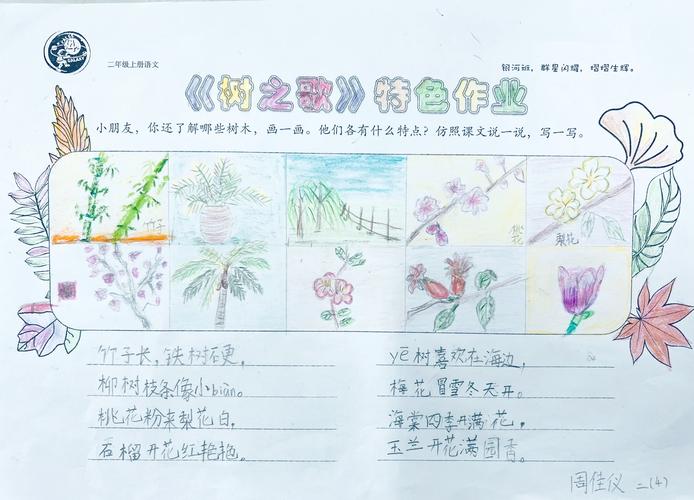 二年级上册语文
银河班，群星闪耀，熠熠生辉。
《树之歌》特色作业
小朋友，你还了解哪些树木，画一画。他们各有什么特点？仿照课文说一说，写一写。
竹子
桃花
梨花
竹子长，铁树硬，
柳树枝条像小biān。
桃花粉来梨花白，
石榴开花红艳艳。
yē树喜欢在海边，
梅花冒雪冬天开。
海棠四季开满花，
玉兰开花满园香。
周佳仪 二(4)